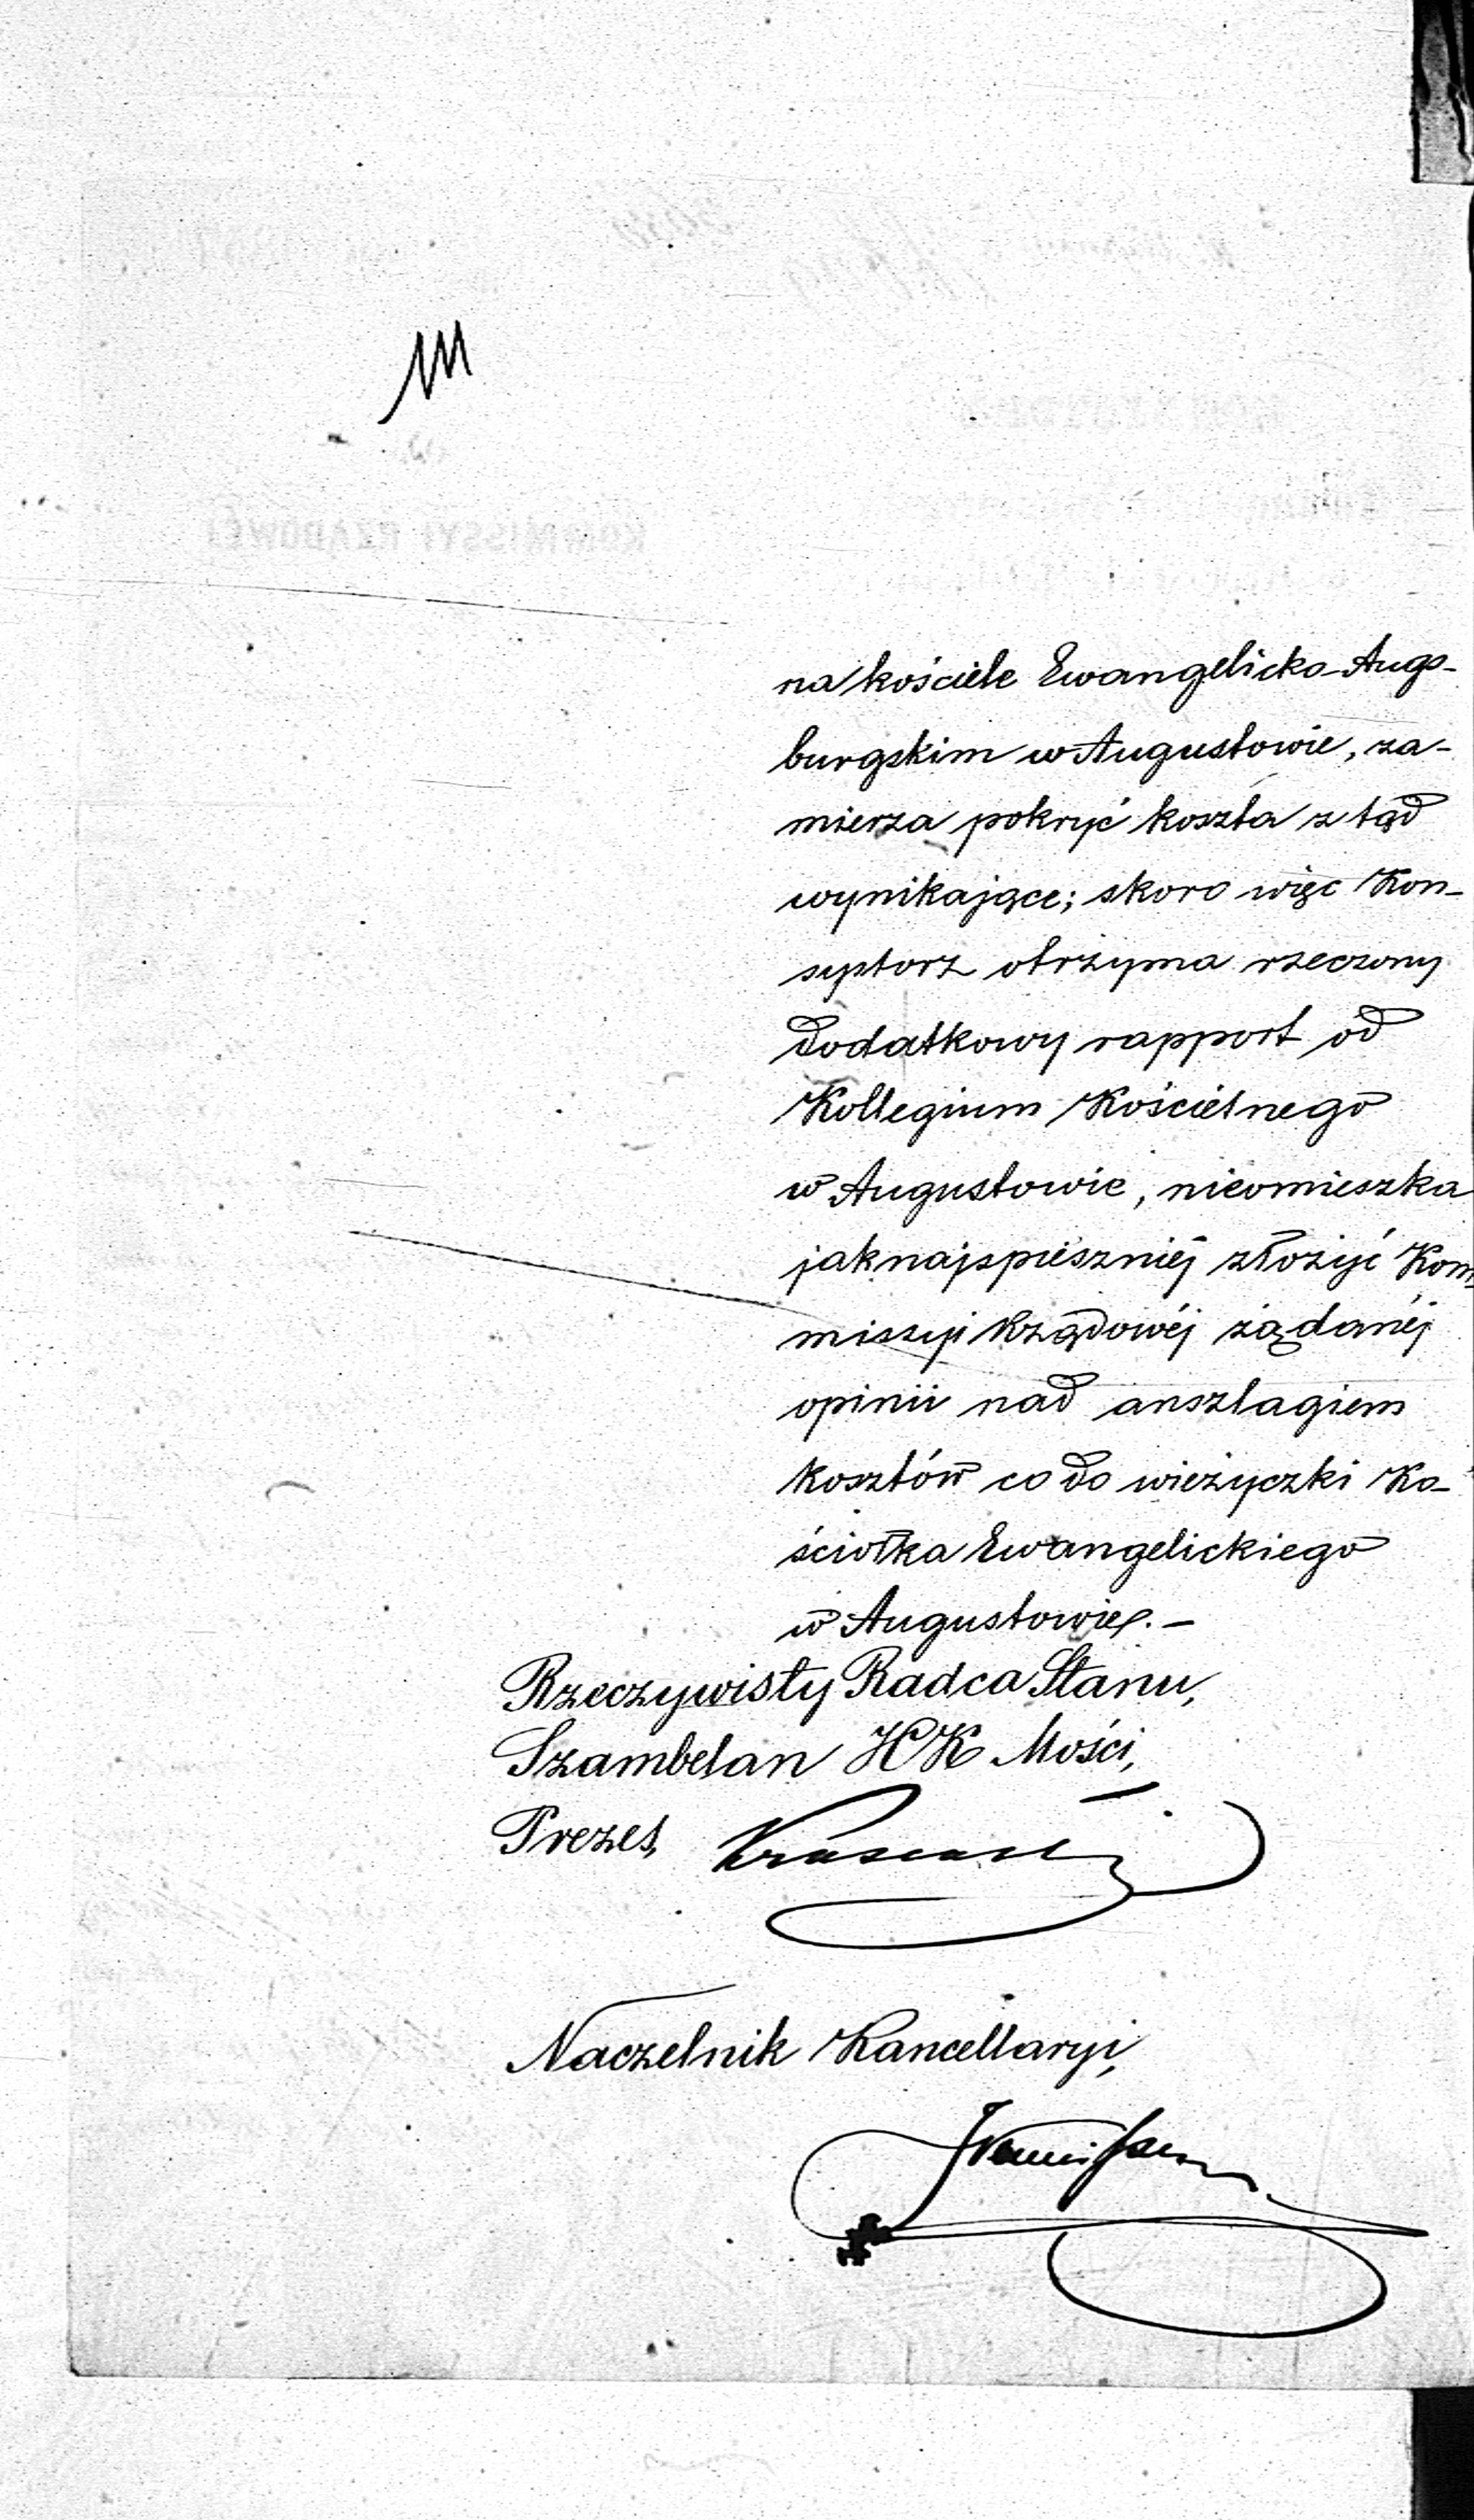 na kościele Ewangelicko-Augs-
burgskim w Augustowie, za-
mierza pokryć koszta z tąd
wynikające; skoro więc Kon-
systorz otrzyma rzeczony
dodatkowy rapport od
Kollegium Kościelnego
w Augustowie, nieomieszka
jaknajspieszniéj złożyć Kom-
missyi Rządowéj żądanéj
opinii nad anszlagiem
kosztów co do wieżyczki Ko-
ściołka Ewangelickiego
w Augustowie. –
Rzeczywisty Radca Stanu,
Szambelan JCK Mości,
Prezes,
Naczelnik Kancellaryi,